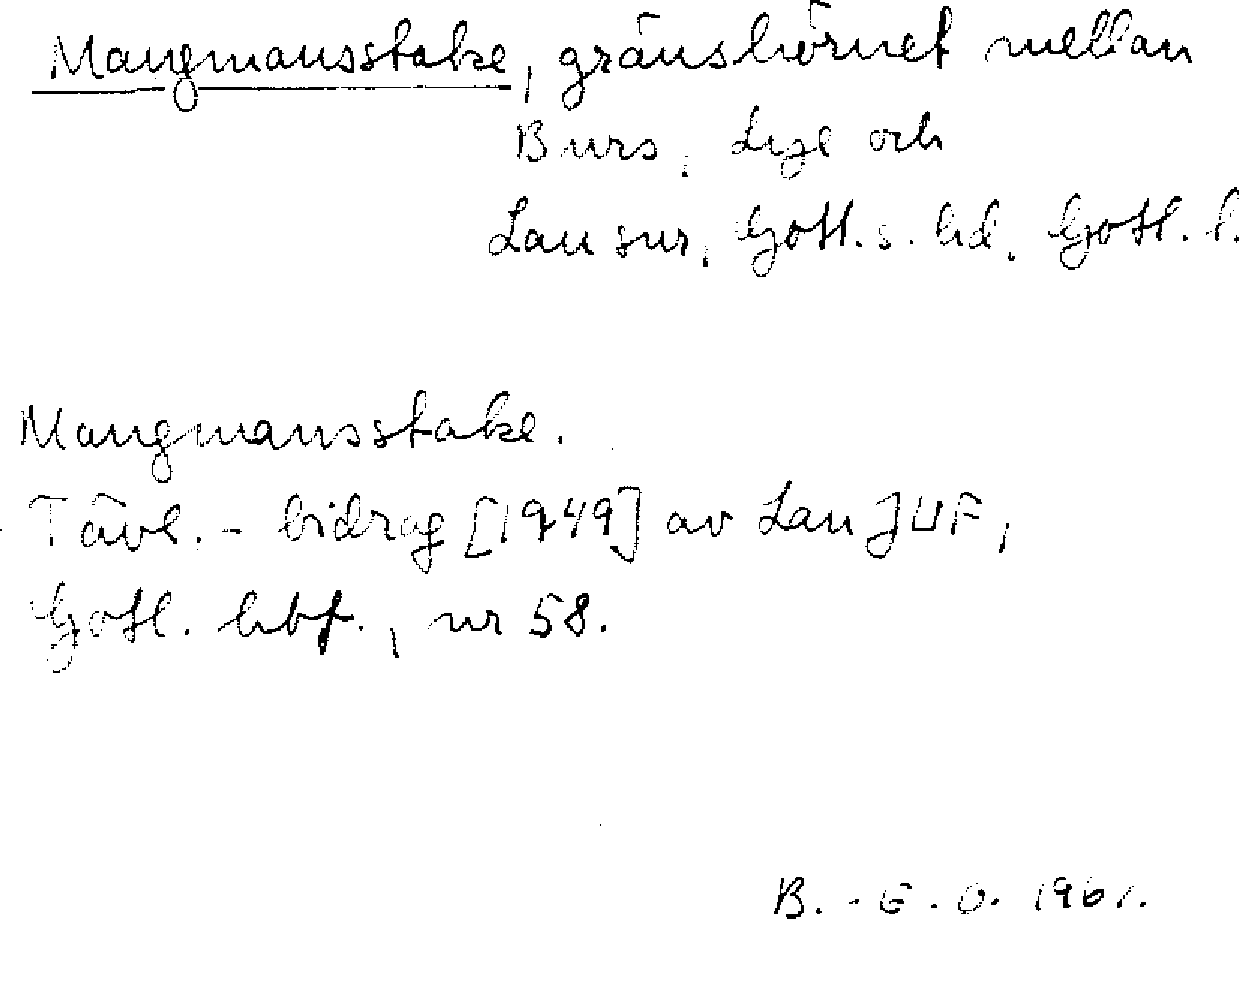 Mangmansstake, gränshörnet mellan
Burs, Lye och
Lau snr, Gotl. s. hd. Gotl. l.
Mangmansstake.
Tävl. - bidrag [1949] av Lau JUF,
Gotl. hbf., nr 58.
B. - E. O. 1961.